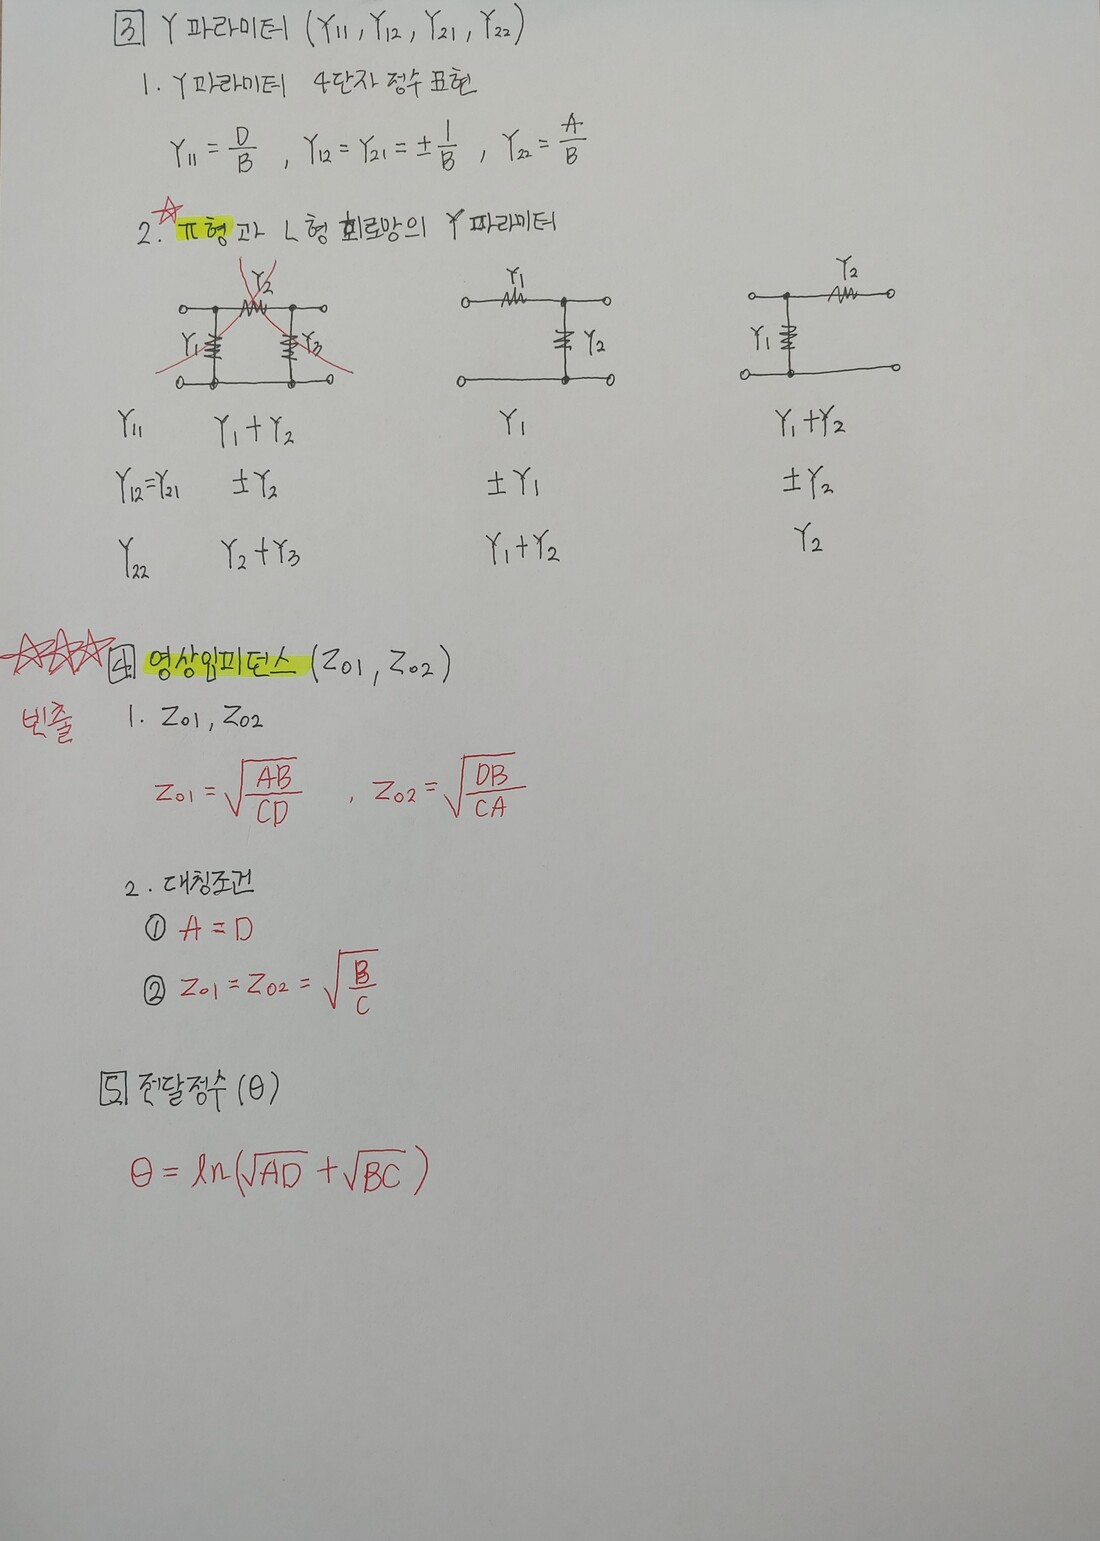 3 Y 파라미터 (Y11, Y12, Y21, Y22)
1. Y파라미터 4단자 정수 표현
Y11 = D/B , Y12 = Y21 = ± 1/B , Y22 = A/B
2. π형과 L형 회로망의 Y 파라미터
Y2 Y1 Y2
Y1 Y3 Y2 Y1
Y11 Y1+Y2 Y1 Y1+Y2
Y12=Y21 ±Y2 ±Y1 ±Y2
Y22 Y2+Y3 Y1+Y2 Y2
4 영상임피던스 (Z01, Z02)
빈출 1. Z01, Z02
Z01 = √(AB/CD) , Z02 = √(DB/CA)
2. 대칭조건
① A = D
② Z01 = Z02 = √(B/C)
5 전달정수(θ)
θ = ln(√AD + √BC)